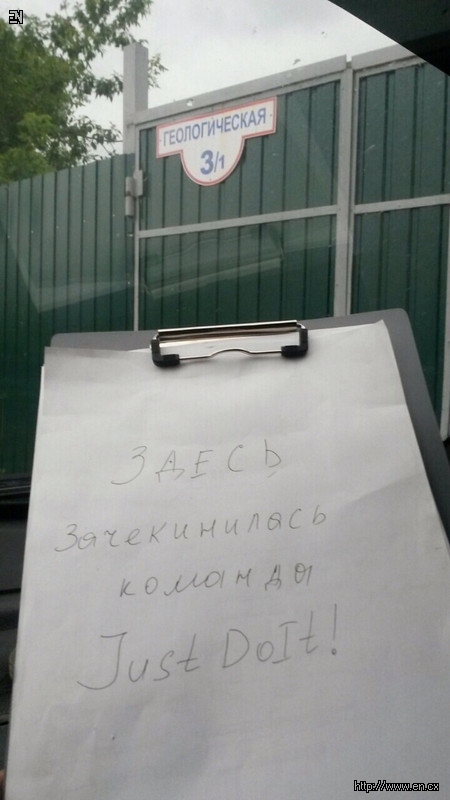 EN
ГЕОЛОГИЧЕСКАЯ
3/1
ЗДЕСЬ
Зачекинилась
команды
Just DoIt!
http://www.en.cx